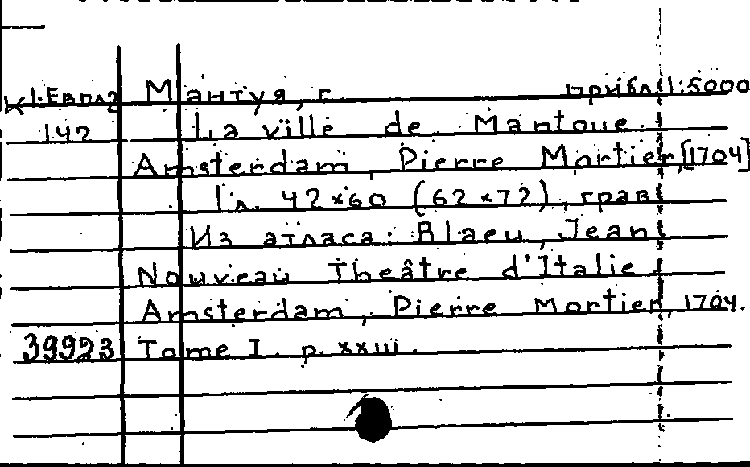 К1:Евпл2 Мантуя, г. прибл 1:5000
142 La ville de Mantoue.
Amsterdam, Pierre Mortier, [1704]
1 л. 42×60 (62×72), грав
Из атласа: Blaeu, Jean
Nouveau Theâtre d'Italie
Amsterdam, Pierre Mortier, 1704.
39923 Tome I. p. xxiii.